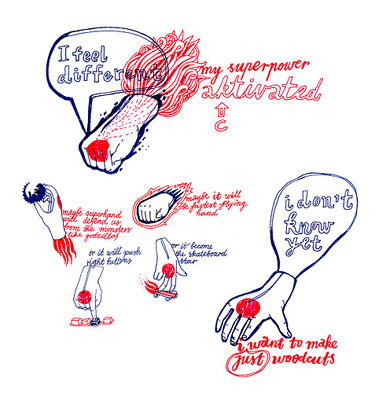 I feel
different
my superpower
aktivated
C
maybe superhand
will defend us
from the monsters
like godzillas
maybe it will
be fastest flying
hand
or it will push
right buttons
or it become
the skateboard
star
i don't
know
yet
i want to make
just woodcuts